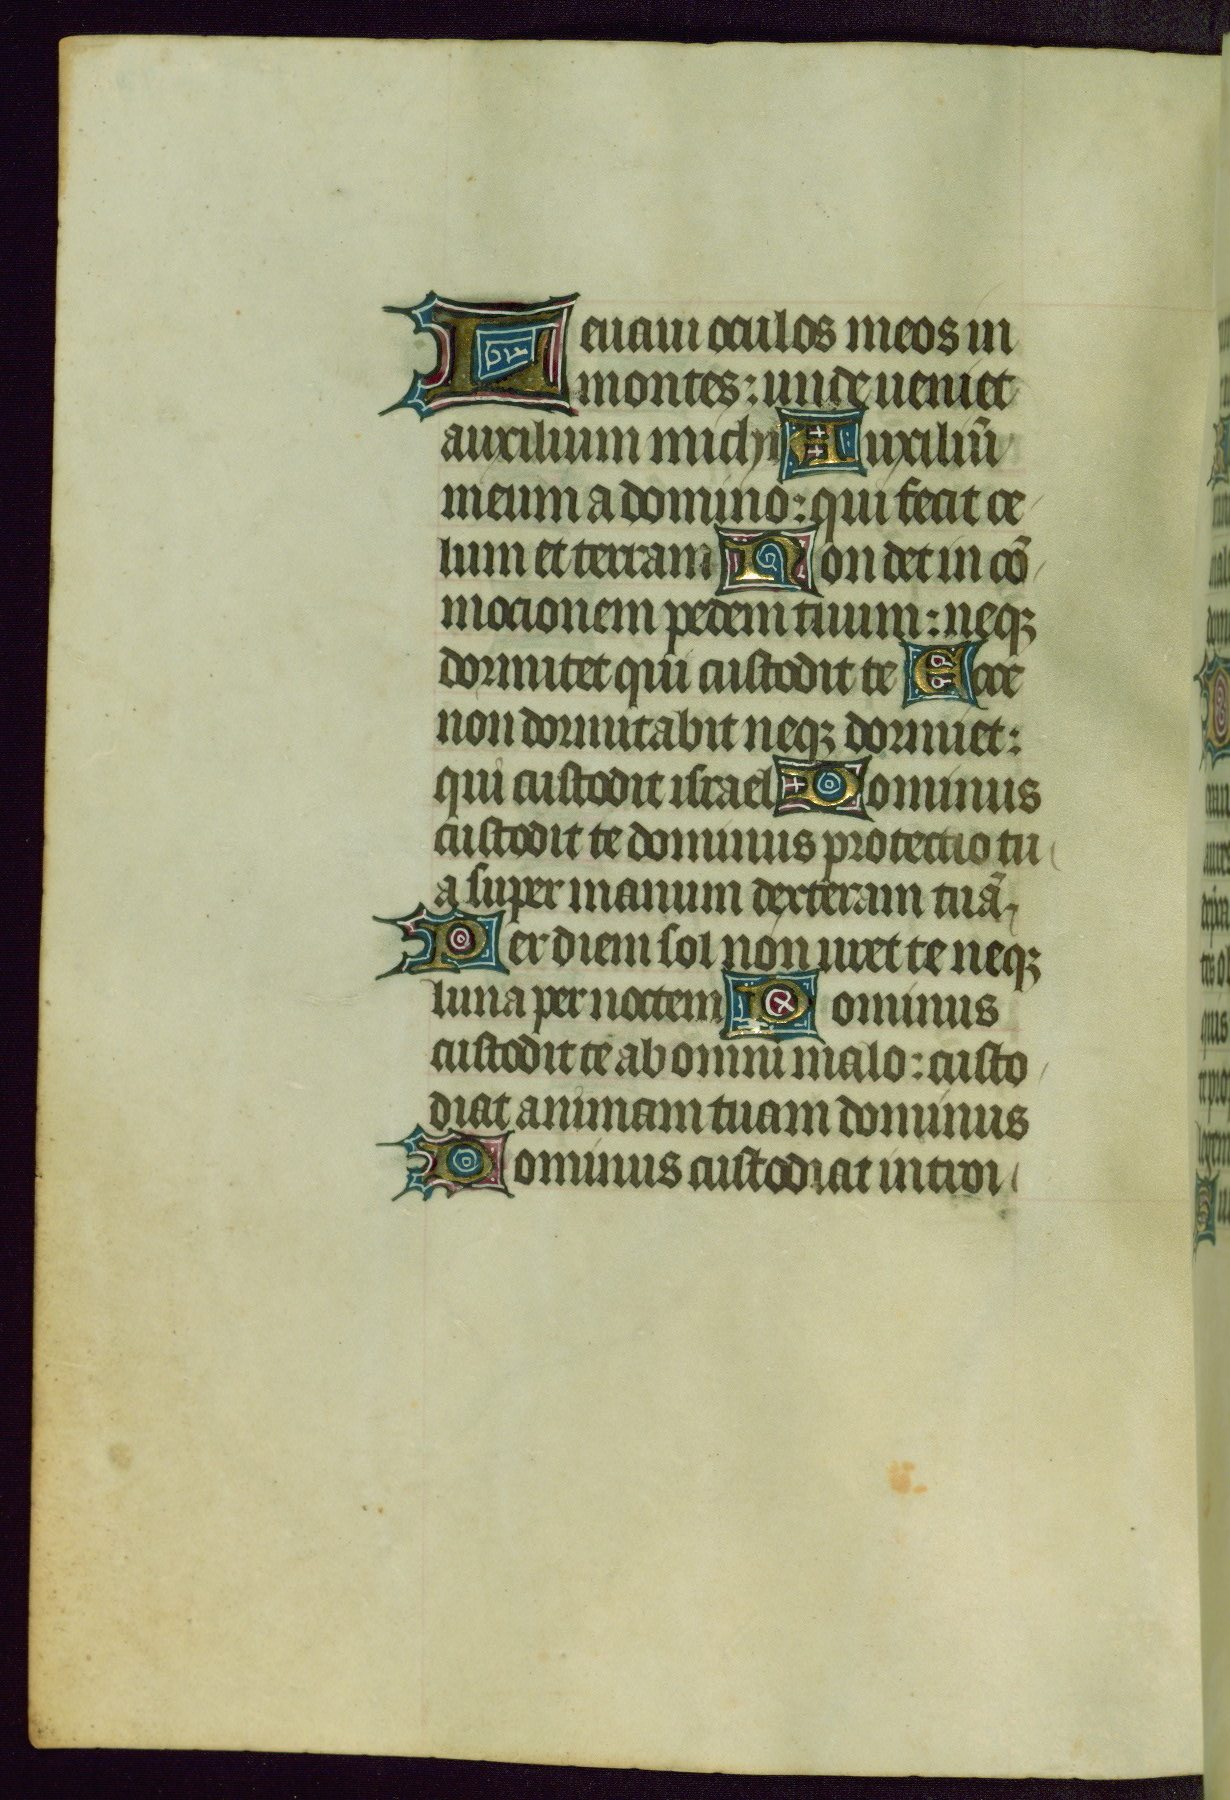 Leuaui oculos meos in
montes: unde ueniet
auxilium michi Auxiliū
meum a domino: qui fecit ce
lum et terram Non det in cō
mocionem pedem tuum: neqꝫ
dormitet qui custodit te Ecce
non dormitabit neqꝫ dormiet:
qui custodit israel Dominus
custodit te dominus protectio tu
a super manum dexteram tuā
Per diem sol non uret te neqꝫ
luna per noctem Dominus
custodit te ab omni malo: custo
diat animam tuam dominus
Dominus custodiat introi